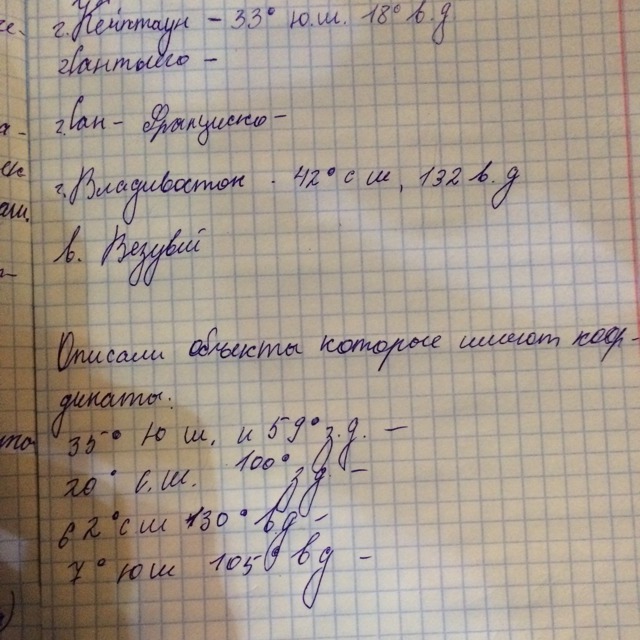 г. Кейптаун - 33° ю.ш. 18° в.д
г. Сантьяго -
г. Сан - Франциско -
г. Владивосток - 42° с ш, 132 в. д
в. Везувий
Описали объекты которые имеют коор-
динаты:
35° ю ш. и 59° з.д. -
20° с.ш. 100° з д -
62° с ш 130° вд -
7° ю ш 105° в д -